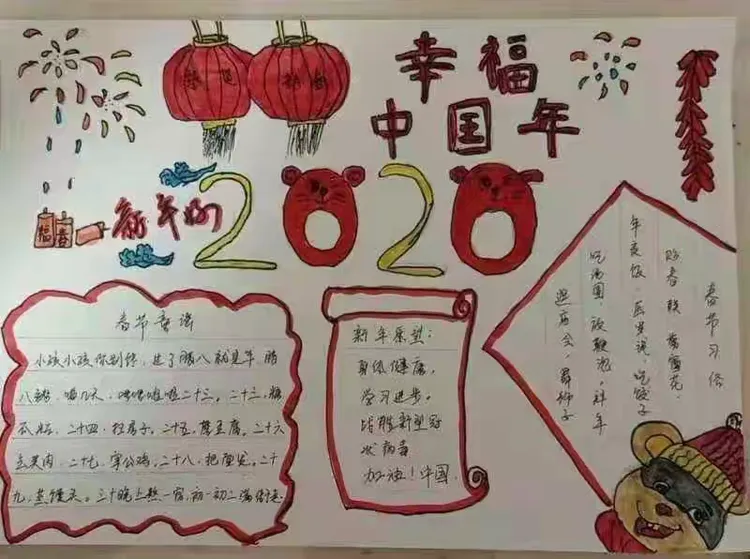 新春
幸福
中国年
福 春
新年好
2020
春节童谣
小孩小孩你别馋,过了腊八就是年,腊
八粥,喝几天,哩哩啦啦二十三。二十三,糖
瓜粘,二十四,扫房子。二十五,磨豆腐。二十六
去买肉,二十七,宰公鸡,二十八,把面发。二十
九,蒸馒头。三十晚上熬一宿,初一初二满街走
新年愿望:
身体健康,
学习进步。
战胜新型冠
状病毒
加油!中国.
春节习俗
贴春联,剪窗花,
年夜饭,压岁钱,吃饺子
吃汤圆,放鞭炮,拜年
逛庙会,舞狮子